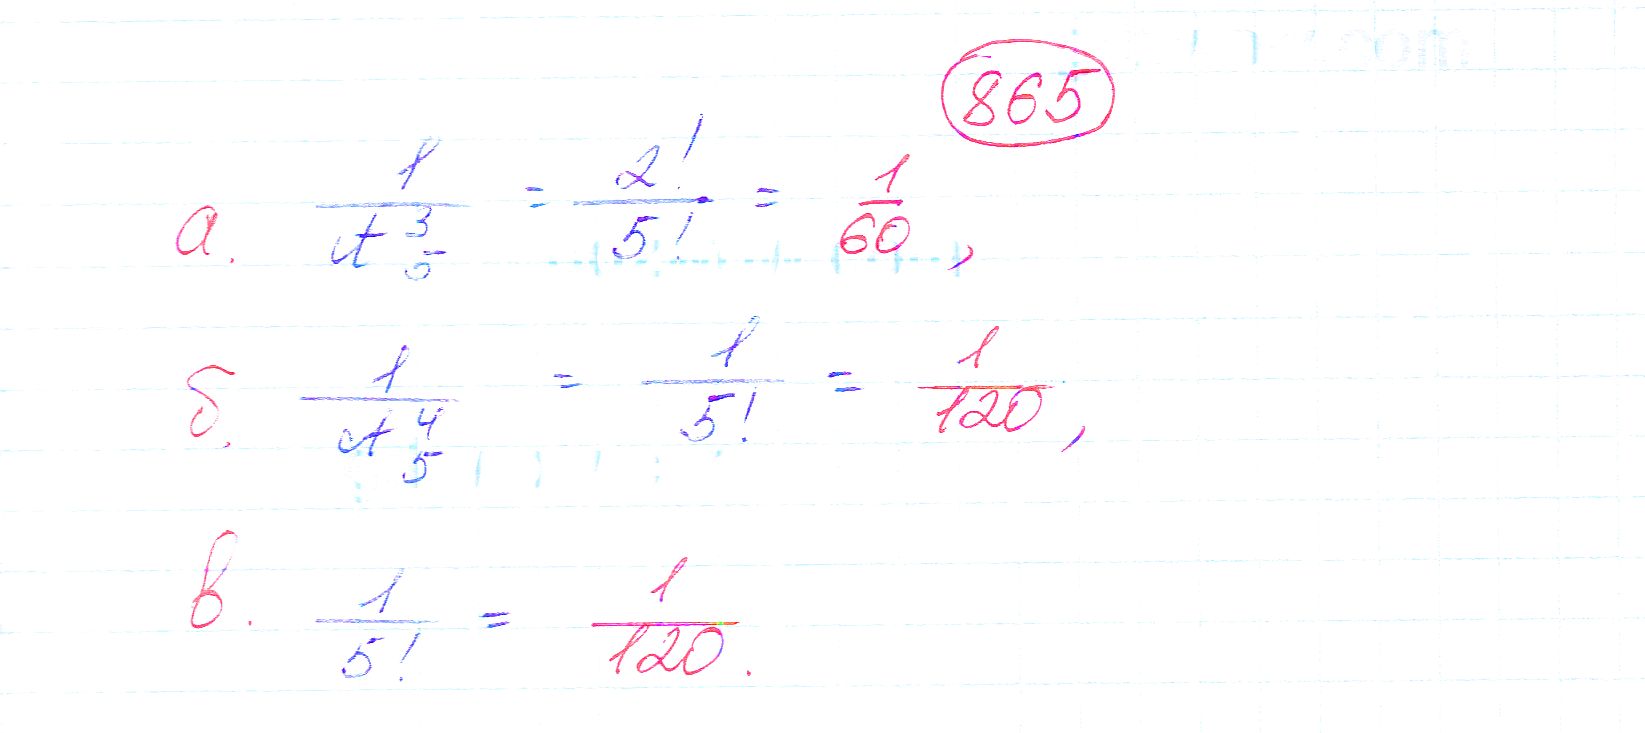 865
а. 1/A^3_5 = 2!/5! = 1/60,
б. 1/A^4_5 = 1/5! = 1/120,
в. 1/5! = 1/120.